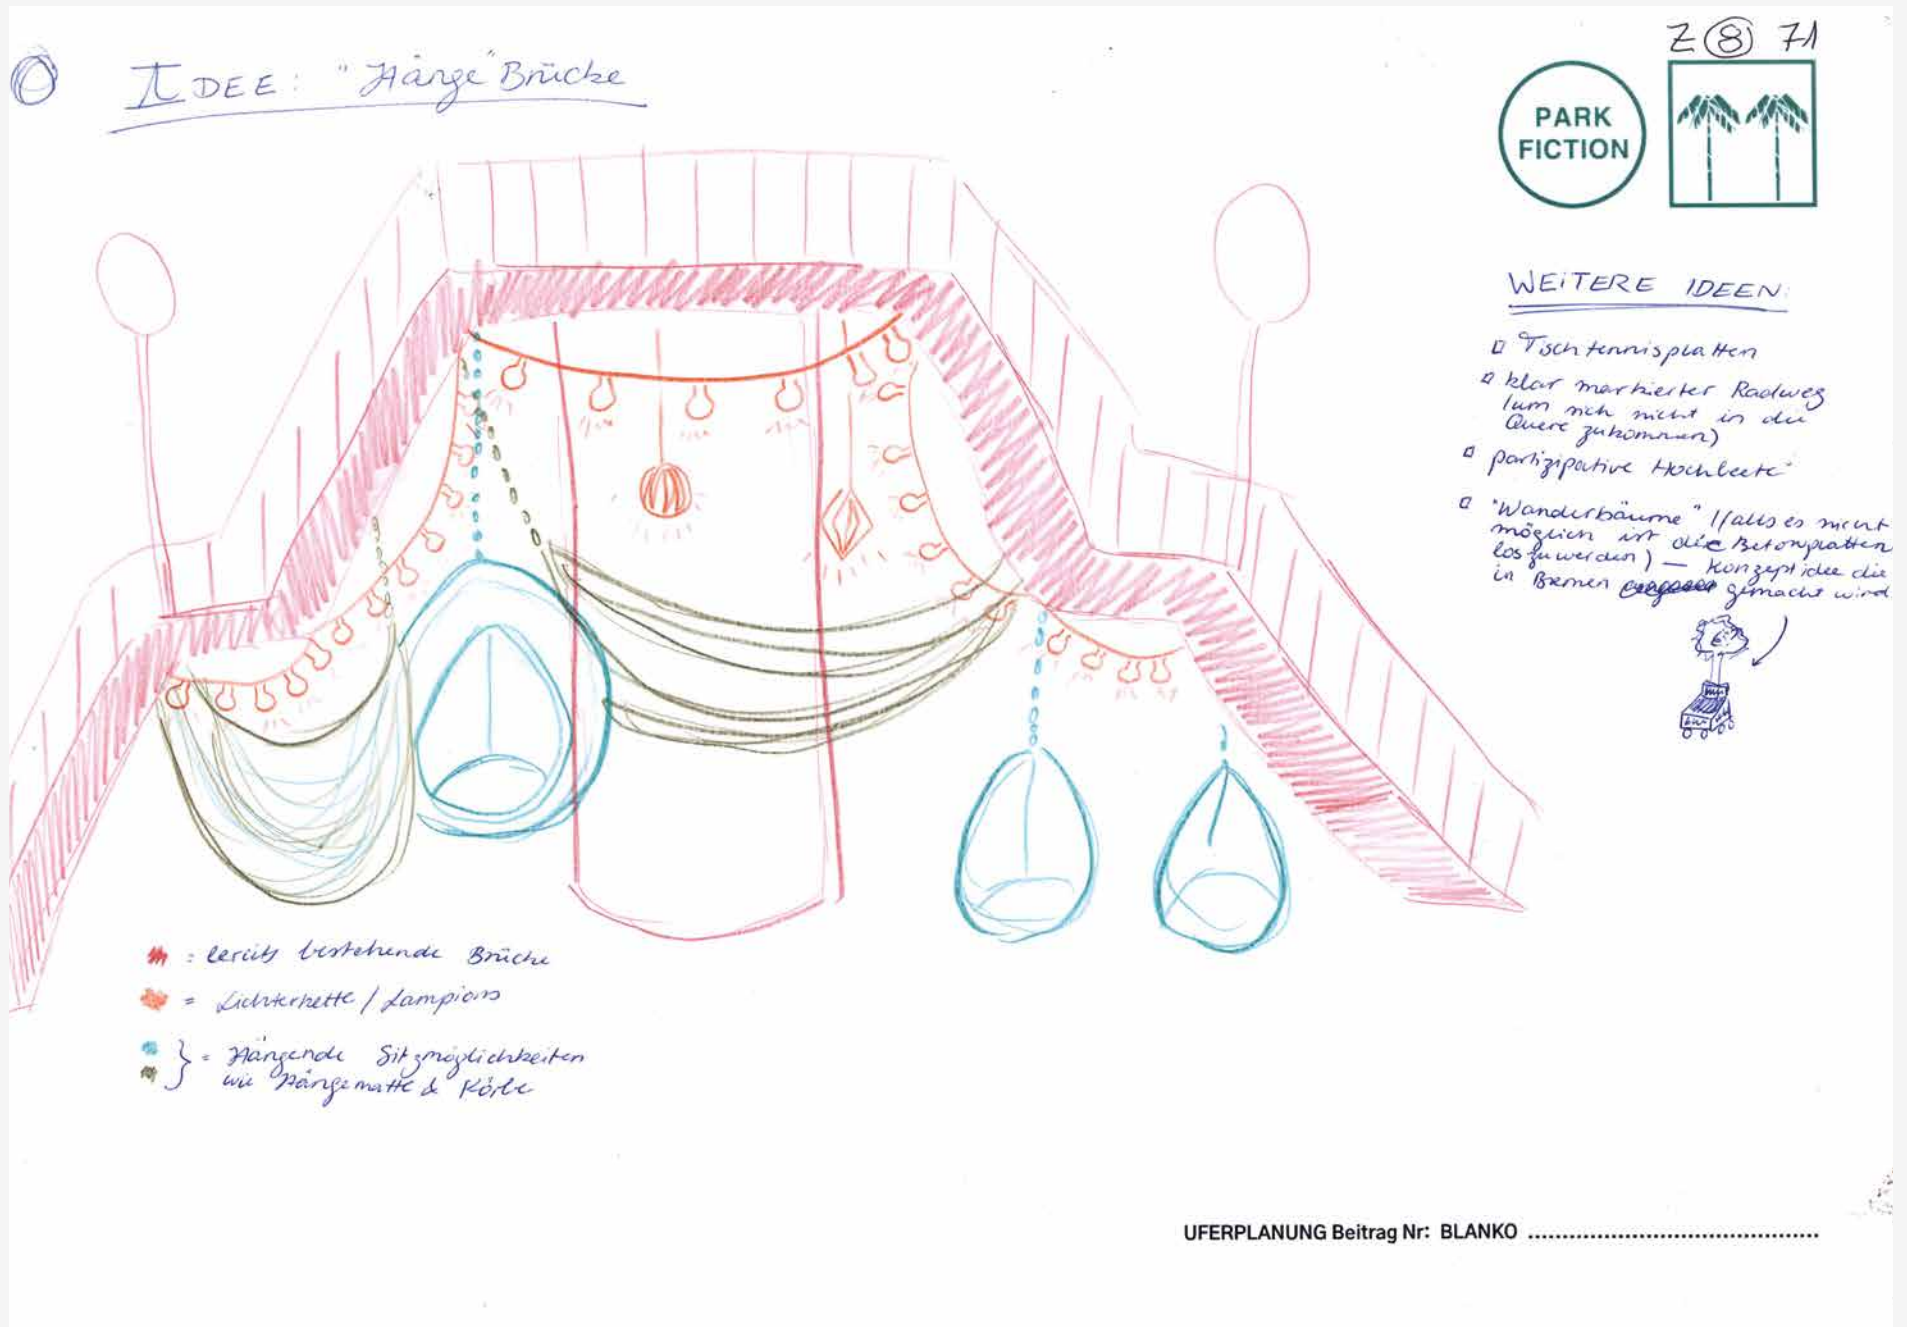 Z ⑧ 71
IDEE: "Hänge" Brücke
PARK
FICTION
WEITERE IDEEN:
Tischtennisplatten
klar markierter Radweg
(um sich nicht in die
Quere zukommen)
partizipative Hochbeete
"Wanderbäume" (falls es nicht
möglich ist die Betonplatten
loszuwerden) — Konzeptidee die
in Bremen gemacht wird
= bereits bestehende Brücke
= Lichterkette / Lampions
} = Hängende Sitzmöglichkeiten
wie Hängematte & Körbe
UFERPLANUNG Beitrag Nr: BLANKO ..........................................